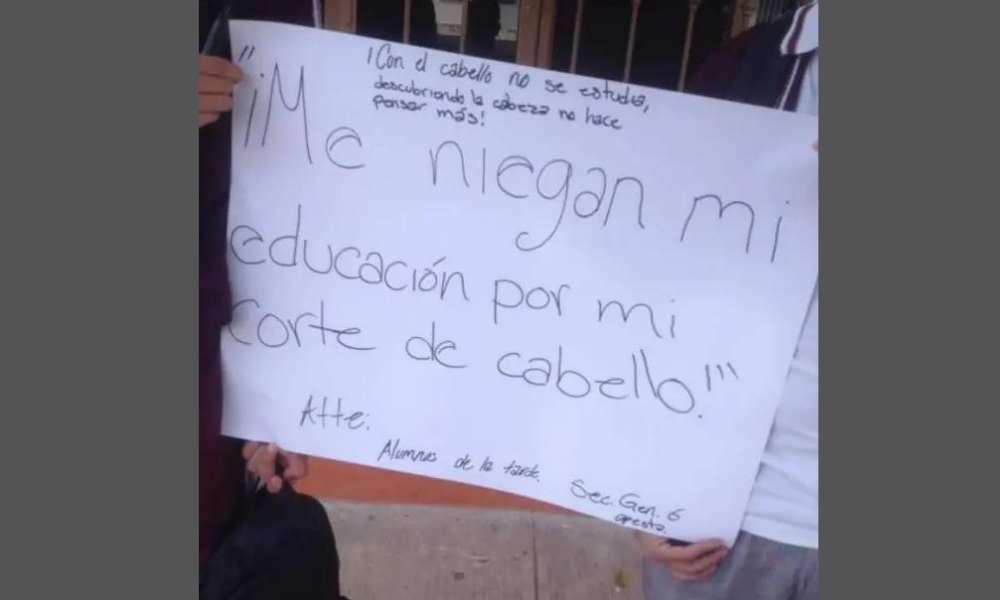 ¡Con el cabello no se estudia,
descubriendo la cabeza no hace
pensar más!
"¡Me niegan mi
educación por mi
corte de cabello!"
Atte:
Alumnos de la tarde.
Sec. Gen. 6